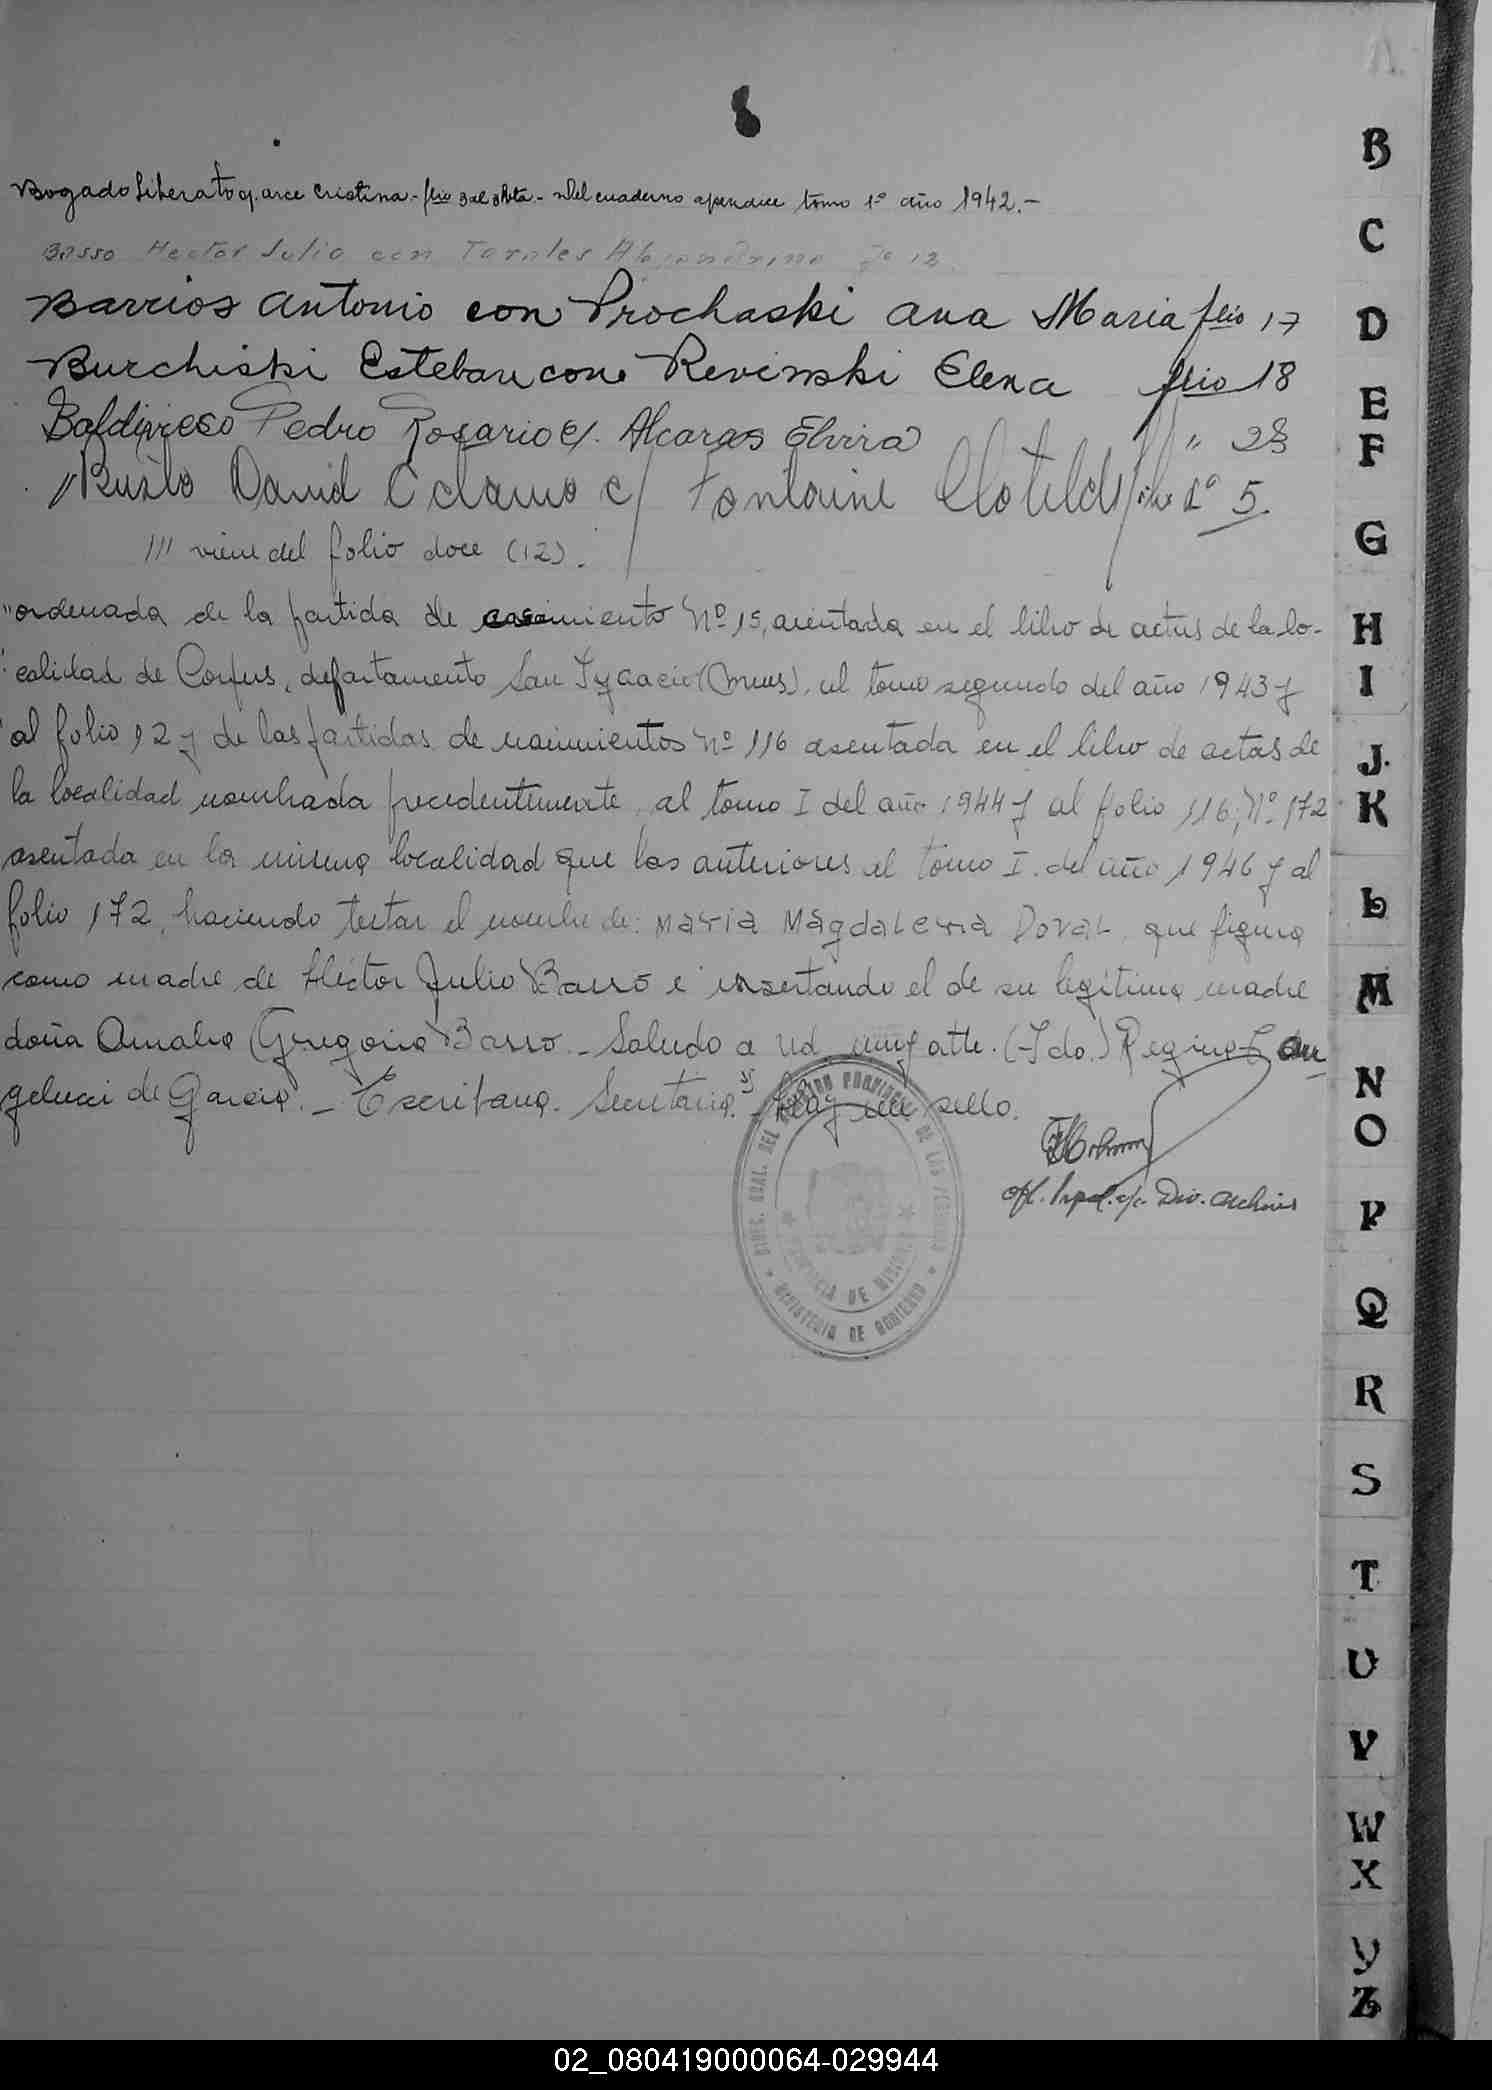 Bogado Liberato c/. arce Cristina.- flio 3 al Acta.- del cuaderno apendice tomo 1º año 1942.-
Basso Hector Julio con Torales Alejandrina Fº 12
Barrios Antonio con Prochaski Ana Maria flio 17
Burchiski Esteban con Revinski Elena flio 18
Baldivieso Pedro Rosario c/. Alcaras Elvira " 28
//Busto David c/ Fontaine Clotilde 1º 5.
/// viene del folio doce (12).
"ordenada de la partida de casamiento Nº 15, asentada en el libro de actas de la lo-
calidad de Corpus, departamento San Ygnacio (Mnes), al tomo segundo del año 1943 y
al folio 12 y de las partidas de nacimientos Nº 116 asentada en el libro de actas de
la localidad nombrada precedentemente, al tomo I del año 1944 y al folio 116; Nº 172
asentada en la misma localidad que las anteriores al tomo I. del año 1946 y al
folio 172, haciendo testar el nombre de: Maria Magdalena Doval, que figura
como madre de Héctor Julio Basso e insertando el de su legítima madre
doña Amalia Gregoria Basso.- Saludo a Ud. muy atte. (Fdo.) Regina C. An
gelucci de Garcia.- Escribana. Secretaria." Hay un sello.
Ofl. Inpal. e/c. Div. Archivos
DIREC. GRAL. DEL REGISTRO PROVINCIAL DE LAS PERSONAS
PROVINCIA DE MISIONES
MINISTERIO DE GOBIERNO
B
C
D
E
F
G
H
I
J.
K
L
M
N
O
P
Q
R
S
T
U
V
W
X
Y
Z
02_080419000064-029944